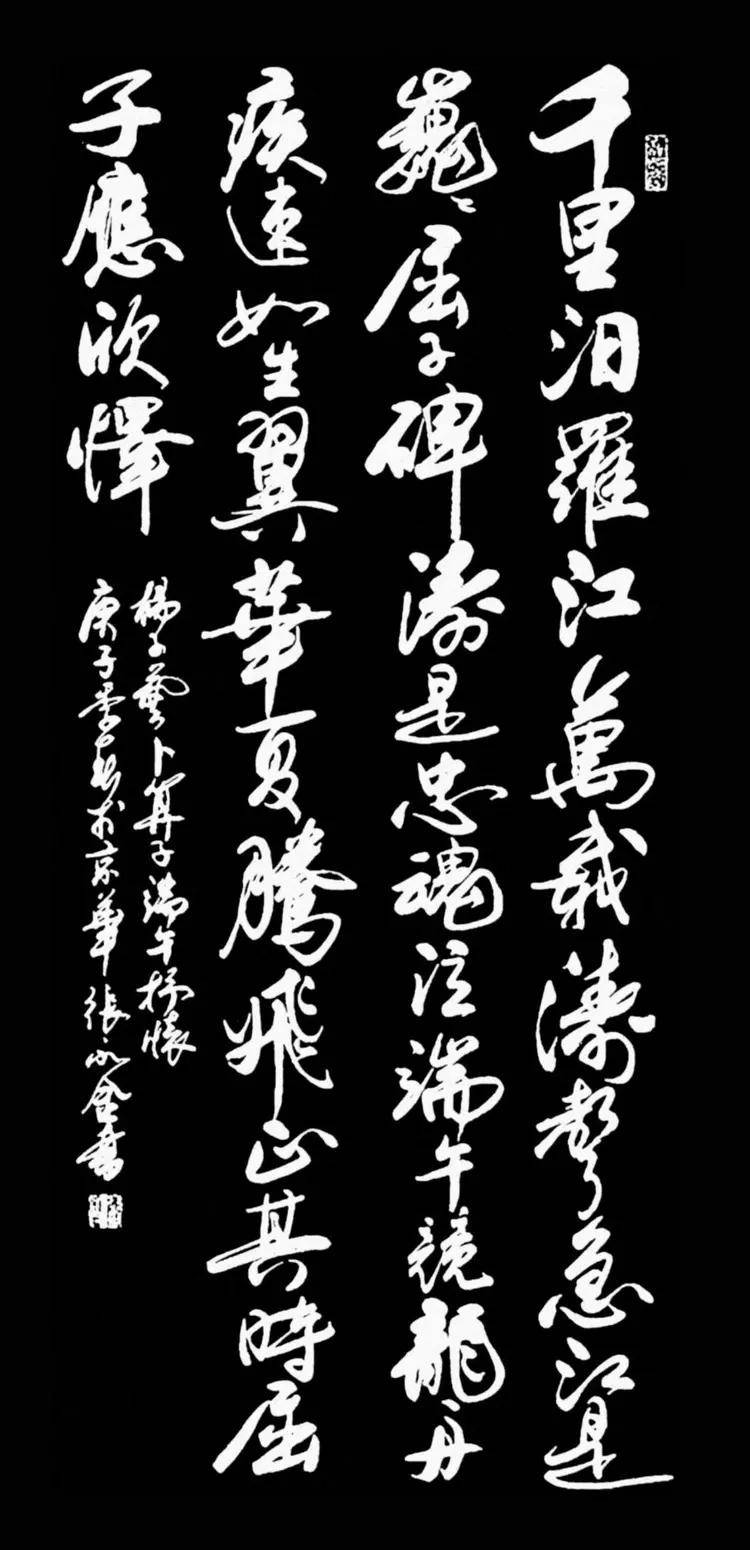 千里汨羅江萬載濤聲急江是
巍〻屈子碑濤是忠魂泣端午競龍舟
疾速如生翼華夏騰飛正其時屈
子應欣懌
楊子藝卜算子端午抒懷
庚子季春於京華張永金書